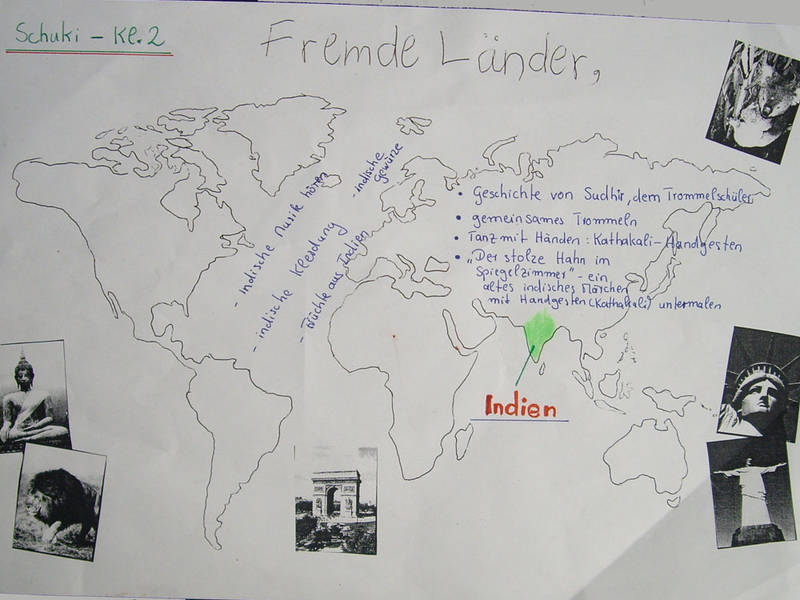 Schuki - Kl. 2
Fremde Länder,
- indische Musik hören
- indische Kleidung
- Früchte aus Indien
- indische
gewürze
• Geschichte von Sudhir, dem Trommelschüler
• gemeinsames Trommeln
• Tanz mit Händen: Kathakali-Handgesten
• „Der stolze Hahn im
Spiegelzimmer" - ein
altes indisches Märchen
mit Handgesten (Kathakali) untermalen
Indien